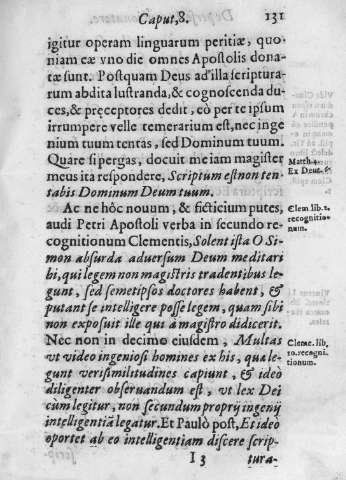 Caput, 8. 131
igitur operam linguarum peritiæ, quo-
niam ex vno die omnes Apostolis dona-
tæ sunt. Postquam Deus ad illa scriptura-
rum abdita lustranda, & cognoscenda du-
ces, & pręceptores dedit, eò per te ipsum
irrumpere velle temerarium est, nec inge
nium tuum tentas, sed Dominum tuum.
Quare si pergas, docuit me iam magister
meus ita respondere, Scriptum est non ten-
tabis Dominum Deum tuum.
Matth. 4.
Ex Deut. 6.
Ac ne hôc nouum, & fictium putes,
audi Petri Apostoli verba in secundo re-
cognitionum Clementis, Solent ista O Si-
mon absurda aduersum Deum meditari
hi, qui legem non magistris tradentibus le-
gunt, sed semetipsos doctores habent, &
putant se intelligere posse legem, quam sibi
non exposuit ille qui à magistro didicerit.
Clem lib. 2.
recognitio-
num.
Nec non in decimo eiusdem, Multas
vt video ingeniosi homines ex his, quæ le-
gunt verisimilitudines capiunt, & ideò
diligenter obseruandum est, vt lex Dei
cùm legitur, non secundum proprij ingenij
intelligentiã legatur. Et Paulò post, Et ideo
oportet ab eo intelligentiam discere scrip-
Cleme. lib,
10. recogni-
tionum.
I 3 tura-